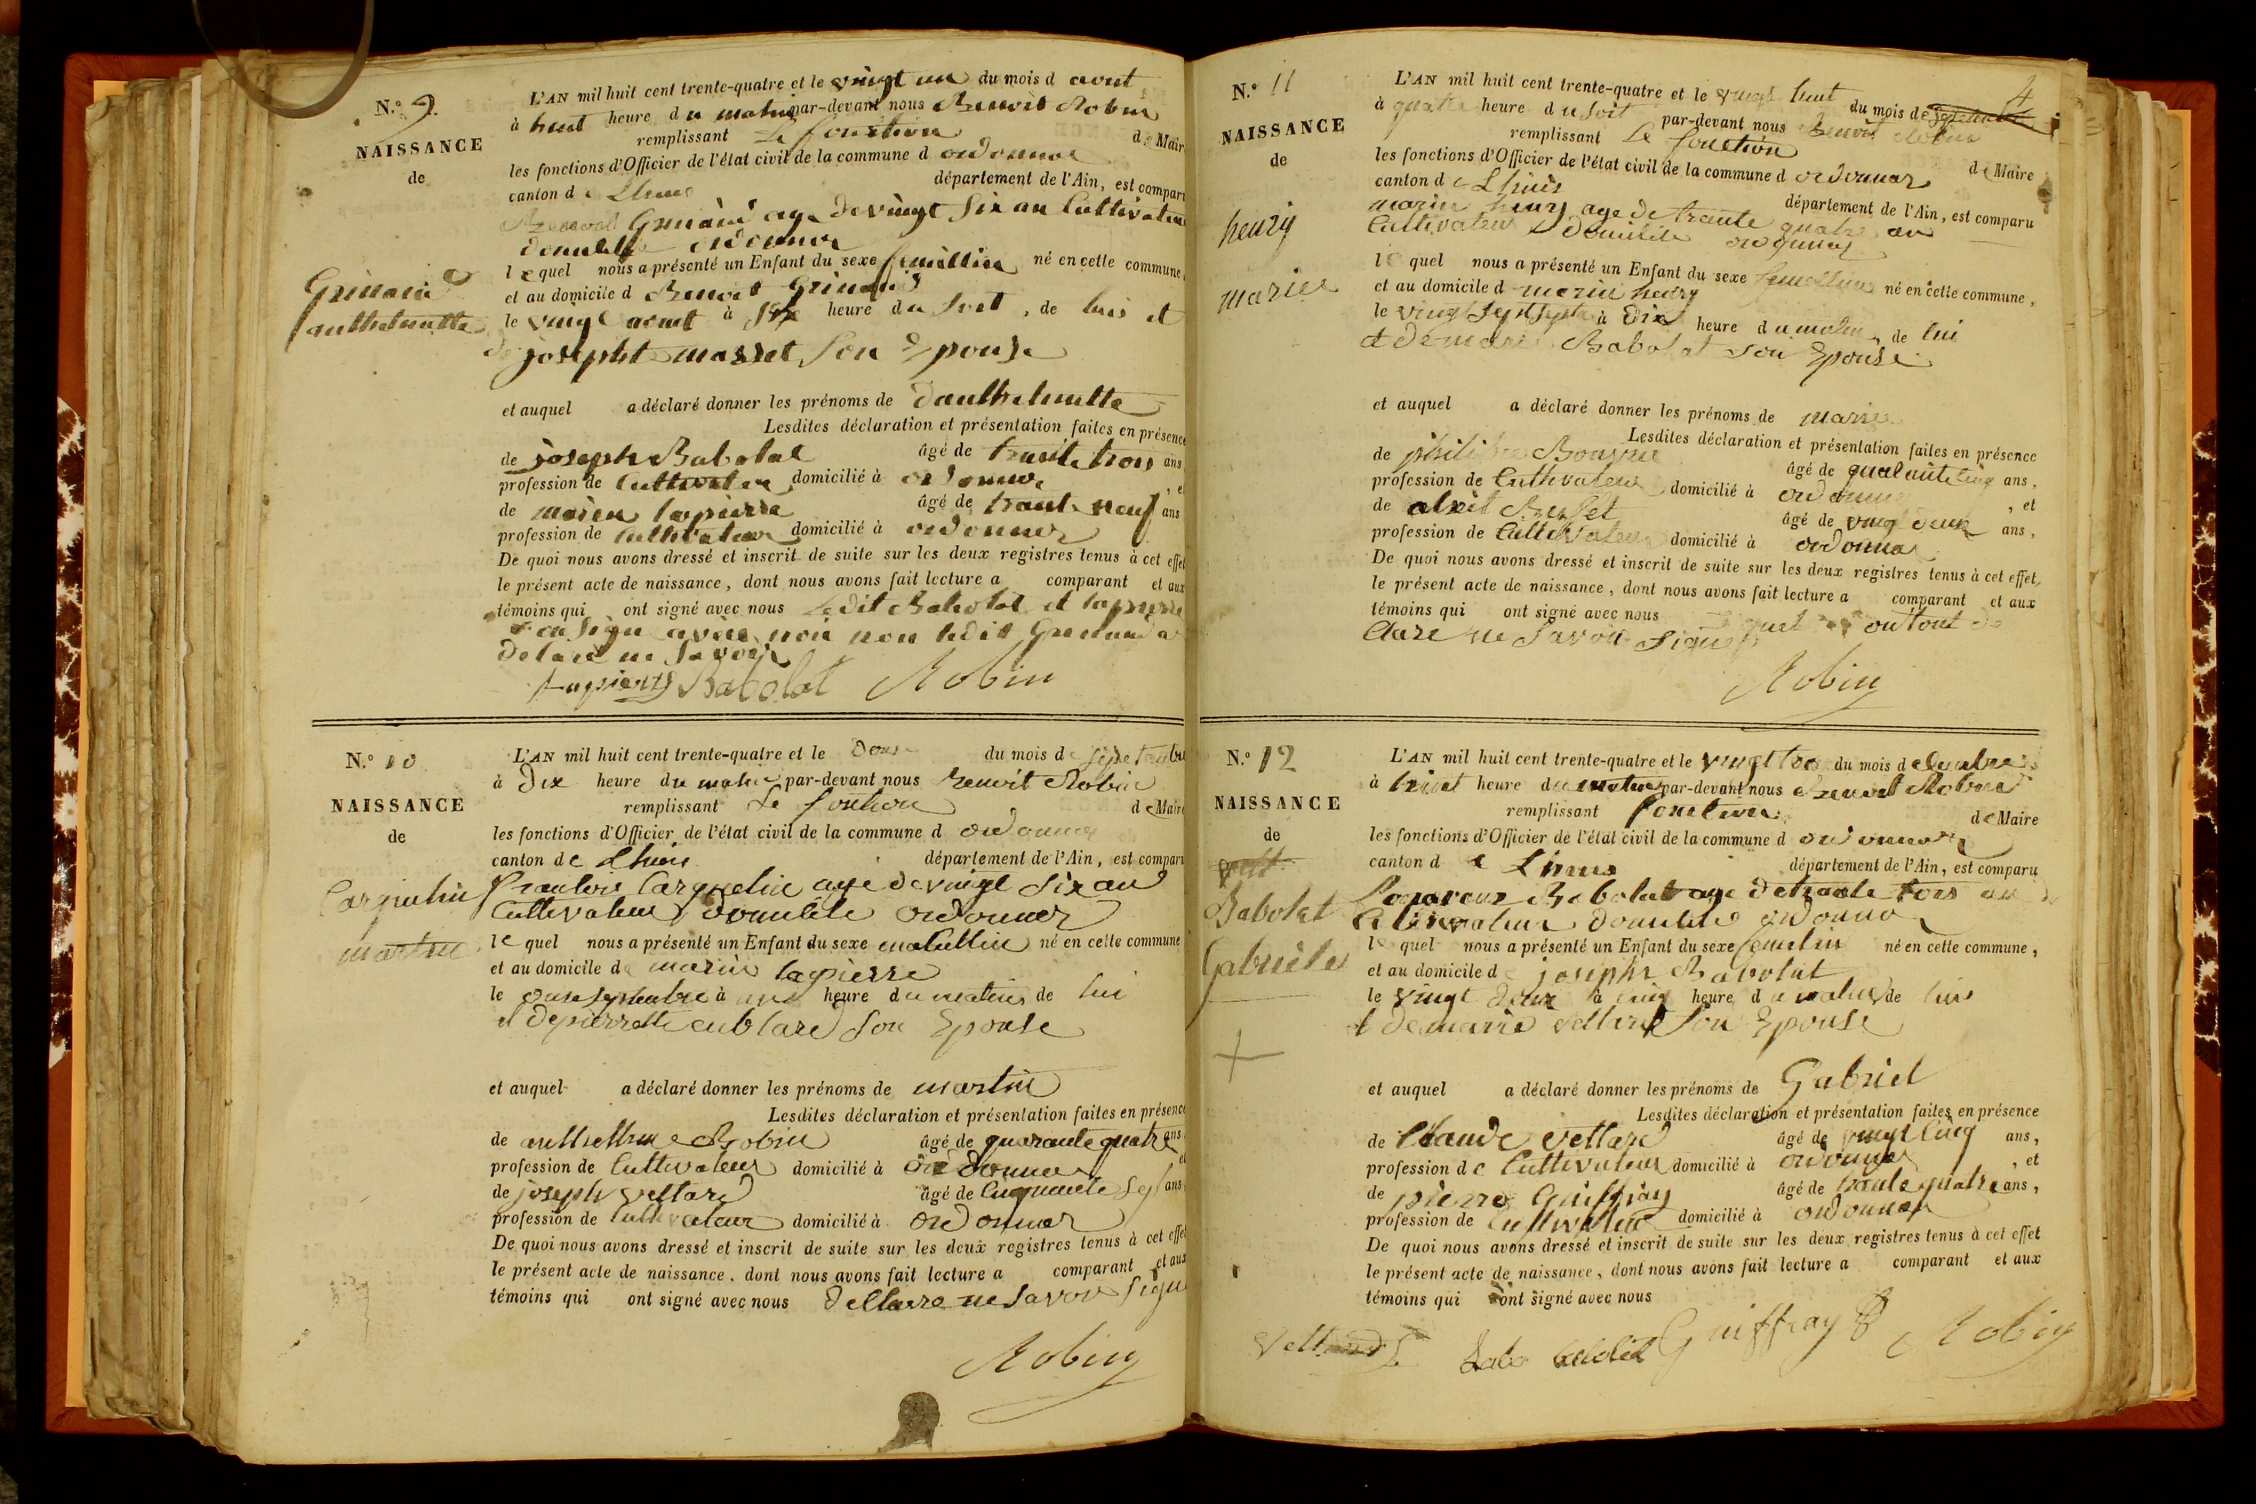 N.° 9.
NAISSANCE
de
Grinand
anthelmette
L'AN mil huit cent trente-quatre et le vingt un du mois d aout
à huit heure du matin par-devant nous Benoit Robin
remplissant Le fonction de Maire
les fonctions d'Officier de l'état civil de la commune d ordonnas
canton de Lhuis département de l'Ain, est comparu
age de vingt six an Cultivateur
domicilié ordonnas
lequel nous a présenté un Enfant du sexe femillin né en cette commune,
et au domicile d Benoit Grinand
le vingt aout à six heure du soit, de luis et
de josepht masset Son Epouse
et auquel a déclaré donner les prénoms de danthelmette
Lesdites déclaration et présentation faites en présence
de joseph Babolat âgé de trente trois ans
profession de Cultivateur domicilié à ordonnas, et
de marin lapierre âgé de trante neuf ans
profession de Cultivateur domicilié à ordonnas
De quoi nous avons dressé et inscrit de suite sur les deux registres tenus à cet effet
le présent acte de naissance, dont nous avons fait lecture a comparant et aux
témoins qui ont signé avec nous Ledit Babolat et lapierre
on signe avec nou non ledit Grinand a
delare ne savoir
Lapierre Babolat Robin
N.° 10
NAISSANCE
de
Carquelin
martin
L'AN mil huit cent trente-quatre et le douse du mois de septembre
à Dix heure du matin par-devant nous Benoit Robin
remplissant Le fonction de Maire
les fonctions d'Officier de l'état civil de la commune d ordonnas
canton de Lhuis département de l'Ain, est comparu
francois Carquelin age de vingt six an
Cultivateur domicilie ordonnas
lequel nous a présenté un Enfant du sexe masculin né en cette commune
et au domicile de marin lapierre
le onse septembre à heure du matin de lui
et de pierrette cublard son Epouse
et auquel a déclaré donner les prénoms de martin
Lesdites déclaration et présentation faites en présence
de anthelme Robin âgé de quarante quatre ans
profession de Cultivateur domicilié à ordonnas et
de joseph vettard âgé de Cinquante sept ans
profession de Cultivateur domicilié à ordonnas
De quoi nous avons dressé et inscrit de suite sur les deux registres tenus à cet effet
le présent acte de naissance, dont nous avons fait lecture a comparant et aux
témoins qui ont signé avec nous dellare ne savoir signe
Robin
4
N.° 11
NAISSANCE
de
henry
marie
L'AN mil huit cent trente-quatre et le vingt huit du mois de septembre
à quatre heure du soit par-devant nous Benoit Robin
remplissant Le fonction de Maire
les fonctions d'Officier de l'état civil de la commune d ordonnas
canton de Lhuis département de l'Ain, est comparu
marin henry age de trante quatre an
Cultivateur domicilie ordonnas
lequel nous a présenté un Enfant du sexe né en cette commune,
et au domicile d marin henry
le vingt sept à dix heure du matin, de lui
et de marie Babolat son Epouse
et auquel a déclaré donner les prénoms de marie
Lesdites déclaration et présentation faites en présence
de âgé de quarante cinq ans,
profession de Cultivateur domicilié à ordonnas, et
de âgé de vingt deux ans,
profession de Cultivateur domicilié à ordonnas
De quoi nous avons dressé et inscrit de suite sur les deux registres tenus à cet effet,
le présent acte de naissance, dont nous avons fait lecture a comparant et aux
témoins qui ont signé avec nous quel ont tout de
clare ne savoir signer
Robin
N.° 12
NAISSANCE
de
Babolat
Gabriele
L'AN mil huit cent trente-quatre et le vingt trois du mois d
à huit heure du matin par-devant nous Benoit Robin
remplissant fonction de Maire
les fonctions d'Officier de l'état civil de la commune d ordonnas
canton de département de l'Ain, est comparu
Babolat age de trante trois an
Cultivateur domicilie ordonnas
lequel nous a présenté un Enfant du sexe femelin né en cette commune,
et au domicile d joseph Babolat
le vingt deux à cinq heure du matin de luis
et de marie vettard son Epouse
et auquel a déclaré donner les prénoms de Gabriel
Lesdites déclaration et présentation faites en présence
de Claude vettard âgé de vingt cinq ans,
profession de Cultivateur domicilié à ordonnas, et
de pierre Guiffray âgé de trante quatre ans,
profession de Cultivateur domicilié à ordonnas
De quoi nous avons dressé et inscrit de suite sur les deux registres tenus à cet effet
le présent acte de naissance, dont nous avons fait lecture a comparant et aux
témoins qui ont signé avec nous
Guiffray Robin